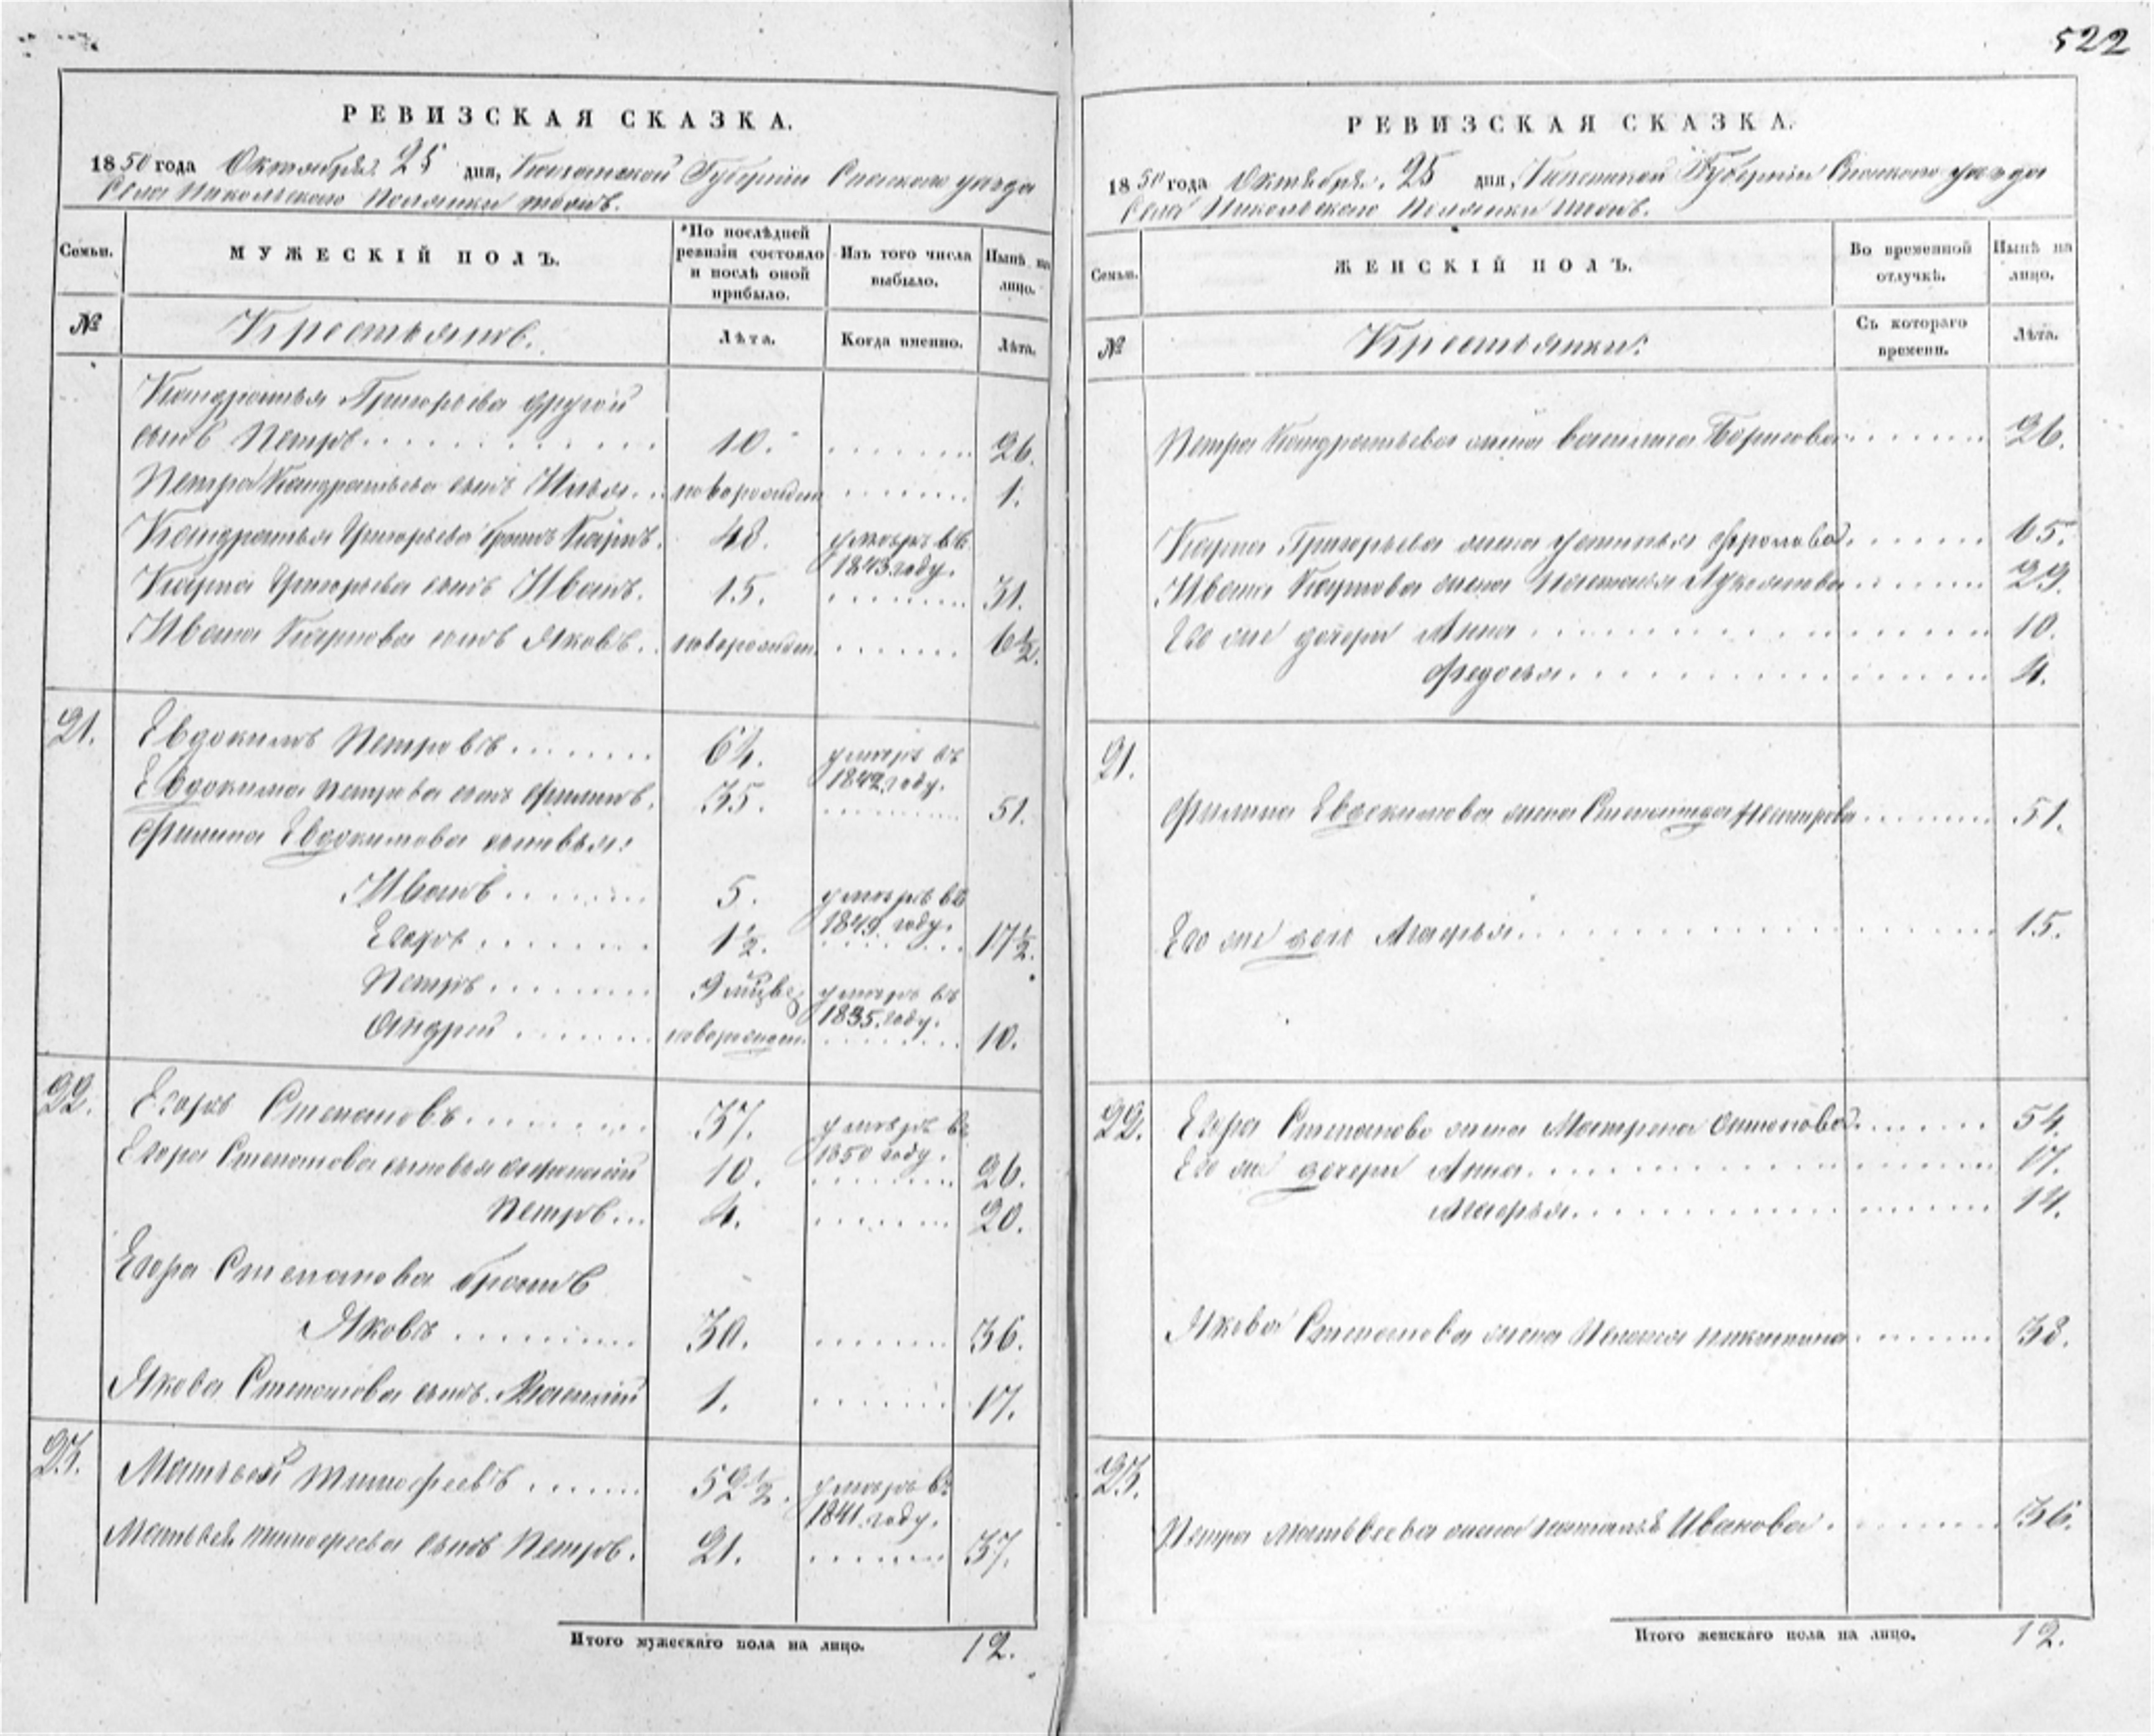 522
РЕВИЗСКАЯ СКАЗКА.
1850 года Октября 25 дня, Казанской Губернии Спаского уезда
Села Никольского Полянки тожъ.
Семьи.
МУЖЕСКІЙ ПОЛЪ.
По послѣдней ревизіи состояло и послѣ оной прибыло.
Изъ того числа выбыло.
Нынѣ на лицо.
№
Крестьяновъ.
Лѣта.
Когда именно.
Лѣта.
Кондратья Григорьева другой
сынъ Петръ 10. 26.
Петра Кондратьева сынъ Илья новорожден 1.
Кондратья Григорьева братъ Карпъ. 48. умеръ въ 1843 году.
Карпа Григорьева сынъ Иванъ. 15. 31.
Ивана Карпова сынъ Яковъ новорожден. 6½.
21. Евдокимъ Петровъ 64. умеръ въ 1842 году.
Евдокима Петрова сынъ Филипъ. 35. 51.
Филипа Евдокимова сыновья:
Иванъ 5. умеръ въ 1849 году.
Егоръ 1½. 17½.
Петръ 9 умеръ въ 1835 году.
Андрей новорожден. 10.
22. Егоръ Степановъ 37. умеръ въ 1850 году.
Егора Степанова сыновья 10. 26.
Петръ 4. 20.
Егора Степанова братъ
Яковъ 30. 36.
Якова Степанова сынъ Василий 1. 17.
23. Матвей Тимофеевъ 52½. умеръ въ 1841 году.
Матвея Тимофеева сынъ Петръ. 21. 37.
Итого мужескаго пола на лицо. 12.
РЕВИЗСКАЯ СКАЗКА.
1850 года Октября 25 дня, Казанской Губернии Спаского уезда
Села Никольского Полянки тожъ.
Семьи.
ЖЕНСКІЙ ПОЛЪ.
Во временной отлучкѣ.
Нынѣ на лицо.
№
Крестьянки:
Съ котораго времени.
Лѣта.
Петра Кондратьева жена Василиса Борисова 26.
Карпа Григорьева жена Устинья Фролова 65.
Ивана Карпова жена Настасья Лукьянова 29.
Его же дочери Анна 10.
Федосья 4.
21.
Филипа Евдокимова жена Степанида Нестерова 51.
Его же дочь Марья 15.
22. Егора Степанова жена Матрена Антонова 54.
Его же дочери Анна 17.
Марья 14.
Якова Степанова жена Пелагея Никитина 38.
23.
Петра Матвеева жена Наталья Иванова 36.
Итого женскаго пола на лицо. 12.